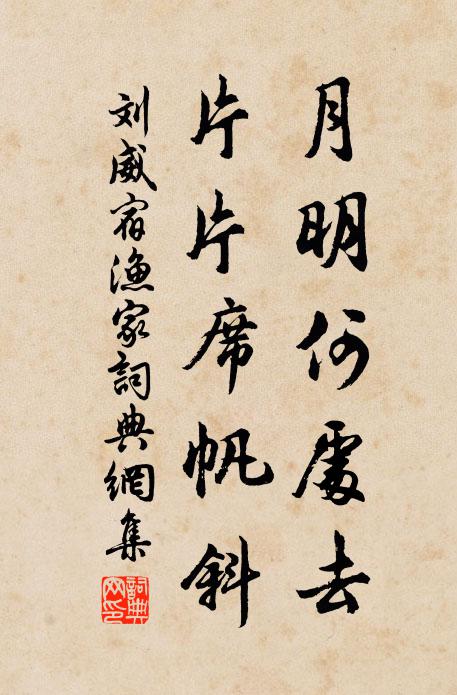 月明何處去
片片席帆斜
刘威宿漁家詞典網集
詞典
网印